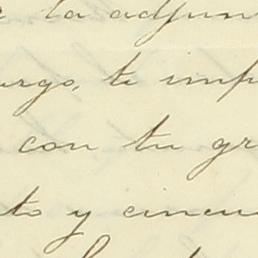 e la adjun
urgo, te imp
con tu gr
to y cincu